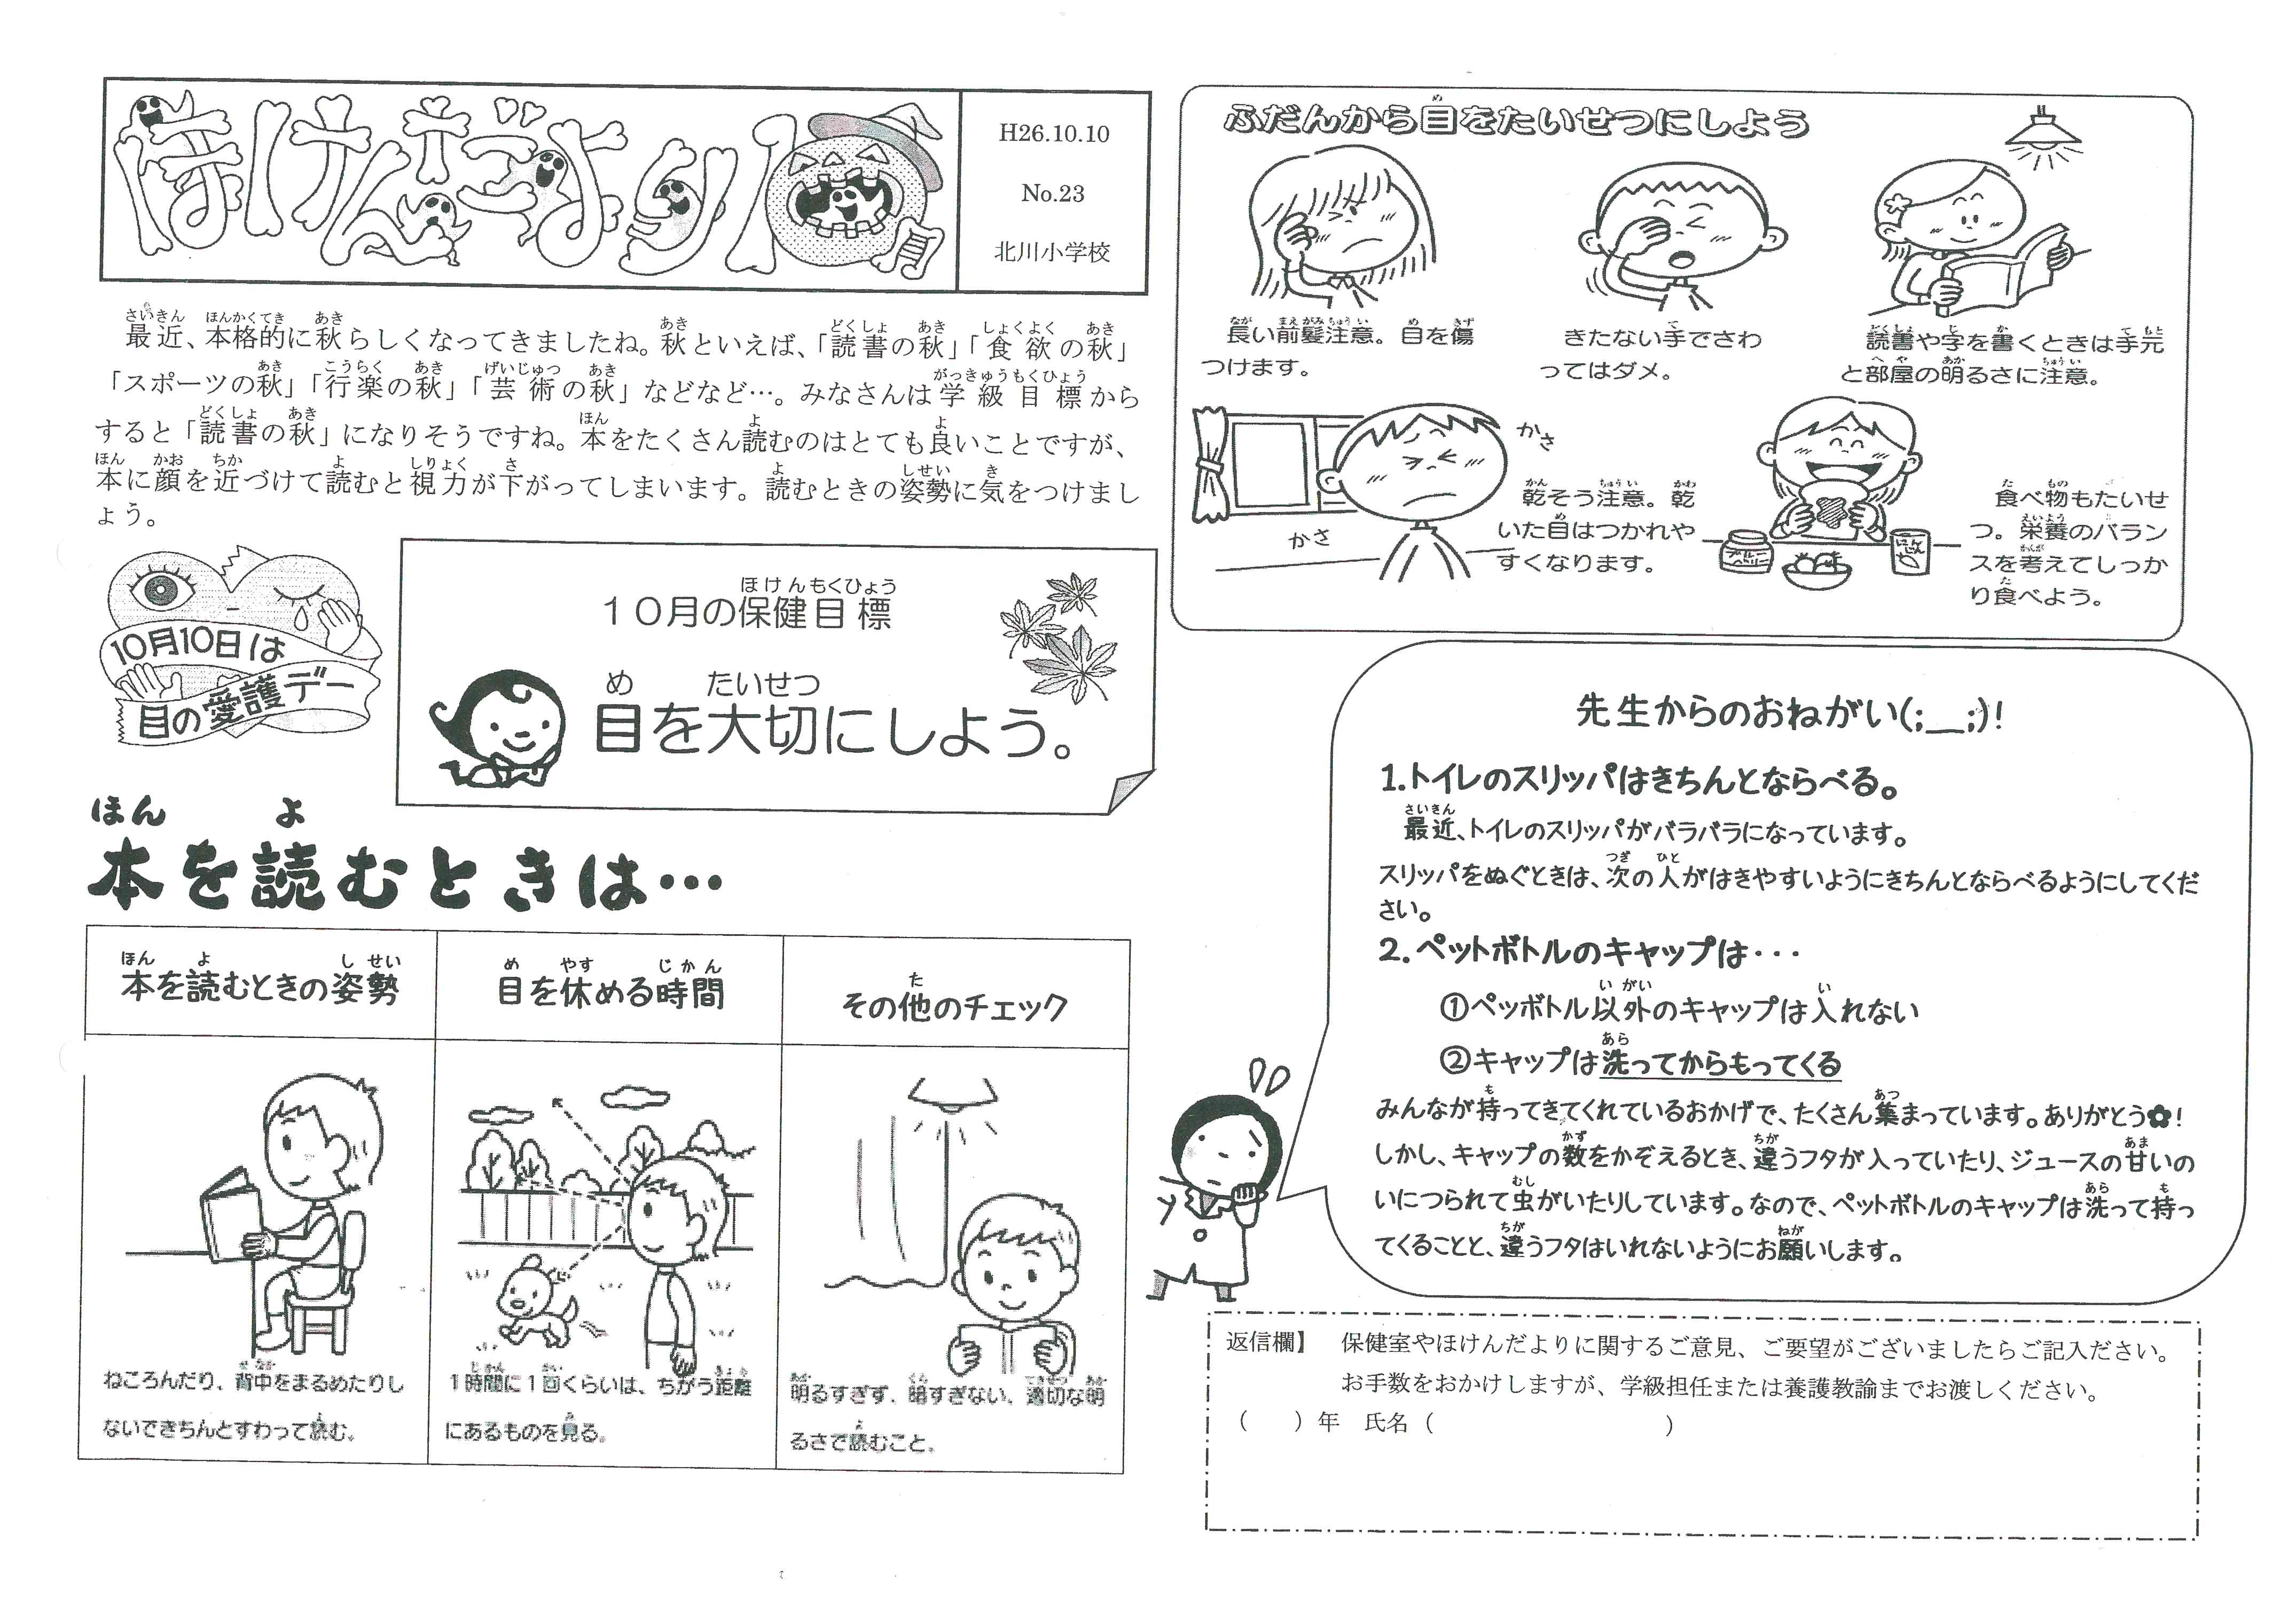 ほけんだより10月
H26.10.10
No.23
北川小学校
最近、本格的に秋らしくなってきましたね。秋といえば、「読書の秋」「食欲の秋」
「スポーツの秋」「行楽の秋」「芸術の秋」などなど…。みなさんは学級目標から
すると「読書の秋」になりそうですね。本をたくさん読むのはとても良いことですが、
本に顔を近づけて読むと視力が下がってしまいます。読むときの姿勢に気をつけまし
ょう。
10月10日は
目の愛護デー
10月の保健目標
目を大切にしよう。
本を読むときは…
本を読むときの姿勢
ねころんだり、背中をまるめたりし
ないできちんとすわって読む。
目を休める時間
1時間に1回くらいは、ちがう距離
にあるものを見る。
その他のチェック
明るすぎず、暗すぎない、適切な明
るさで読むこと。
ふだんから目をたいせつにしよう
長い前髪注意。目を傷
つけます。
きたない手でさわ
ってはダメ。
読書や字を書くときは手元
と部屋の明るさに注意。
かさ
かさ
乾そう注意。乾
いた目はつかれや
すくなります。
食べ物もたいせ
つ。栄養のバラン
スを考えてしっか
り食べよう。
先生からのおねがい(;__;)!
1.トイレのスリッパはきちんとならべる。
最近、トイレのスリッパがバラバラになっています。
スリッパをぬぐときは、次の人がはきやすいようにきちんとならべるようにしてくだ
さい。
2.ペットボトルのキャップは・・・
①ペッボトル以外のキャップは入れない
②キャップは洗ってからもってくる
みんなが持ってきてくれているおかげで、たくさん集まっています。ありがとう✿!
しかし、キャップの数をかぞえるとき、違うフタが入っていたり、ジュースの甘いの
いにつられて虫がいたりしています。なので、ペットボトルのキャップは洗って持っ
てくることと、違うフタはいれないようにお願いします。
返信欄】 保健室やほけんだよりに関するご意見、ご要望がございましたらご記入ださい。
お手数をおかけしますが、学級担任または養護教諭までお渡しください。
（　　）年　氏名（　　　　　　　　　　）